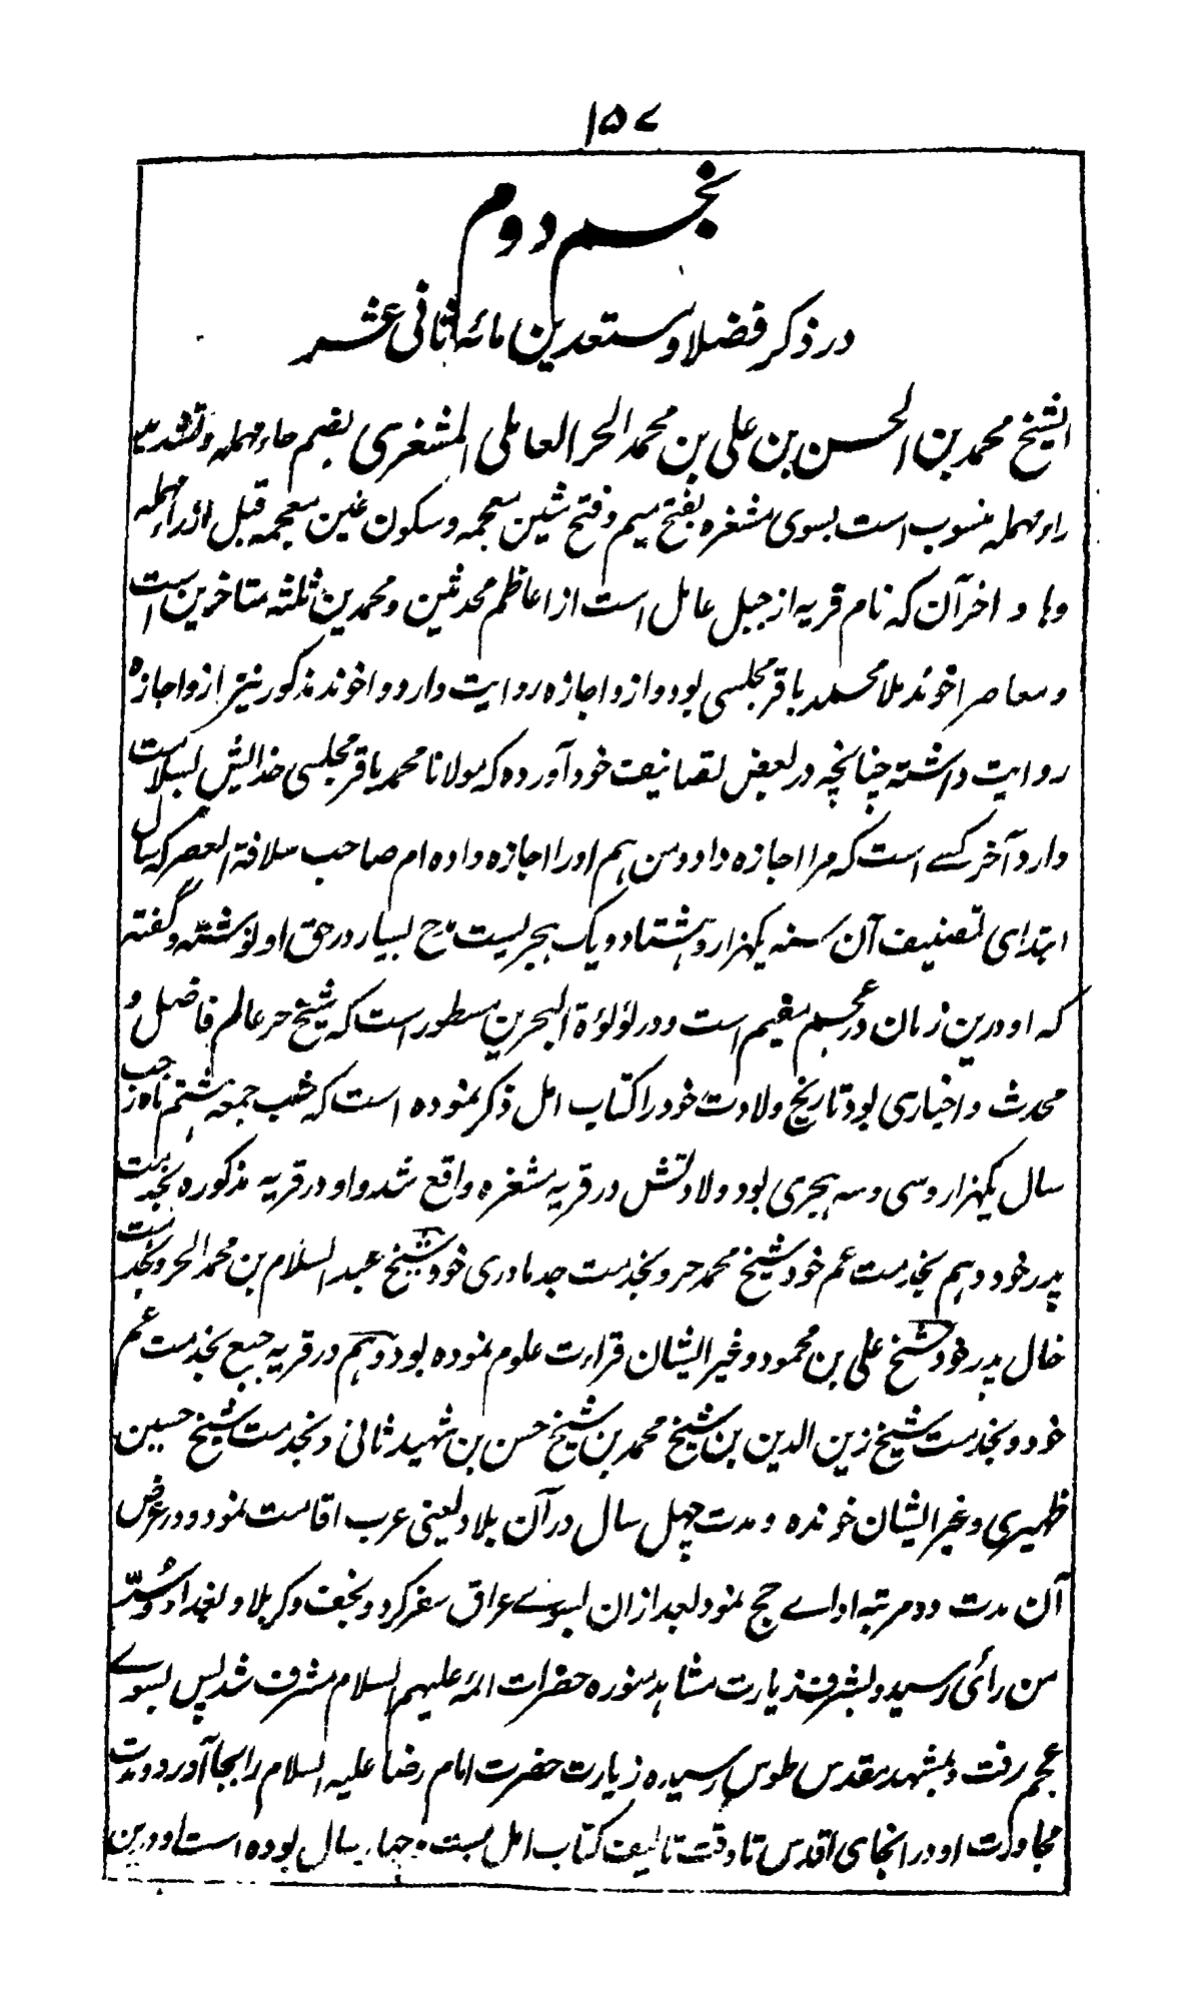 ۱۵۷
نجم دوم
در ذکر فضلا و مستعدین مائه ثانی عشر
الشیخ محمد بن الحسن بن علی بن محمد الحر العاملی المشغری بضم حاء مهمله و تشدید
راء مهمله منسوب است بسوی مشغره بفتح میم و فتح شین معجمه و سکون غین معجمه قبل از راء مهمله
و ها در اخر آن که نام قریه از جبل عامل است از اعاظم محدثین و محمدین ثلثه متاخرین است
و معاصر اخوند ملا محمد باقر مجلسی بود و از و اجازه روایت دارد و اخوند مذکور نیز از و اجازه
روایت داشته چنانچه در بعض تصانیف خود آورده که مولانا محمد باقر مجلسی خدایش بسلامت
دارد آخر کسے است که مرا اجازه داد و من هم او را اجازه داده ام صاحب سلافة العصر که سال
ابتدای تصنیف آن سنه یکهزار و هشتاد و یک هجریست مدح بسیار در حق او نوشته و گفته
که او درین زمان در عجم مقیم است و در لؤلؤة البحرین مسطور است که شیخ حر عالم فاضل و
محدث و اخباری بود تاریخ ولادت خود را کتاب امل ذکر نموده است که شب جمعه هشتم ماه رجب
سال یکهزار و سی و سه هجری بود ولادتش در قریه مشغره واقع شد و او در قریه مذکوره بخدمت
پدر خود و هم بخدمت عم خود شیخ محمد حر و بخدمت جد مادری خود شیخ عبد السلام بن محمد الحر و بخدمت
خال پدر خود شیخ علی بن محمود و غیر ایشان قراءت علوم نموده بود و هم در قریه جبع بخدمت عم
خود و بخدمت شیخ زین الدین بن شیخ محمد بن شیخ حسن بن شهید ثانی و بخدمت شیخ حسین
ظهیری و غیر ایشان خوانده و مدت چهل سال در آن بلاد یعنی عرب اقامت نمود و در عرض
آن مدت دو مرتبه اداے حج نمود بعد ازان بسوے عراق سفر کرد و نجف و کربلا و بغداد و سُرّ
من رأی رسید و بشرف زیارت مشاهد منوره حضرات ائمه علیهم السلام مشرف شد پس بسوے
عجم رفت و بمشهد مقدس طوس رسیده زیارت حضرت امام رضا علیه السلام را بجا آورد و مدت
مجاورت او در انجای اقدس تا وقت تالیف کتاب امل بست و چهار سال بوده است او درین